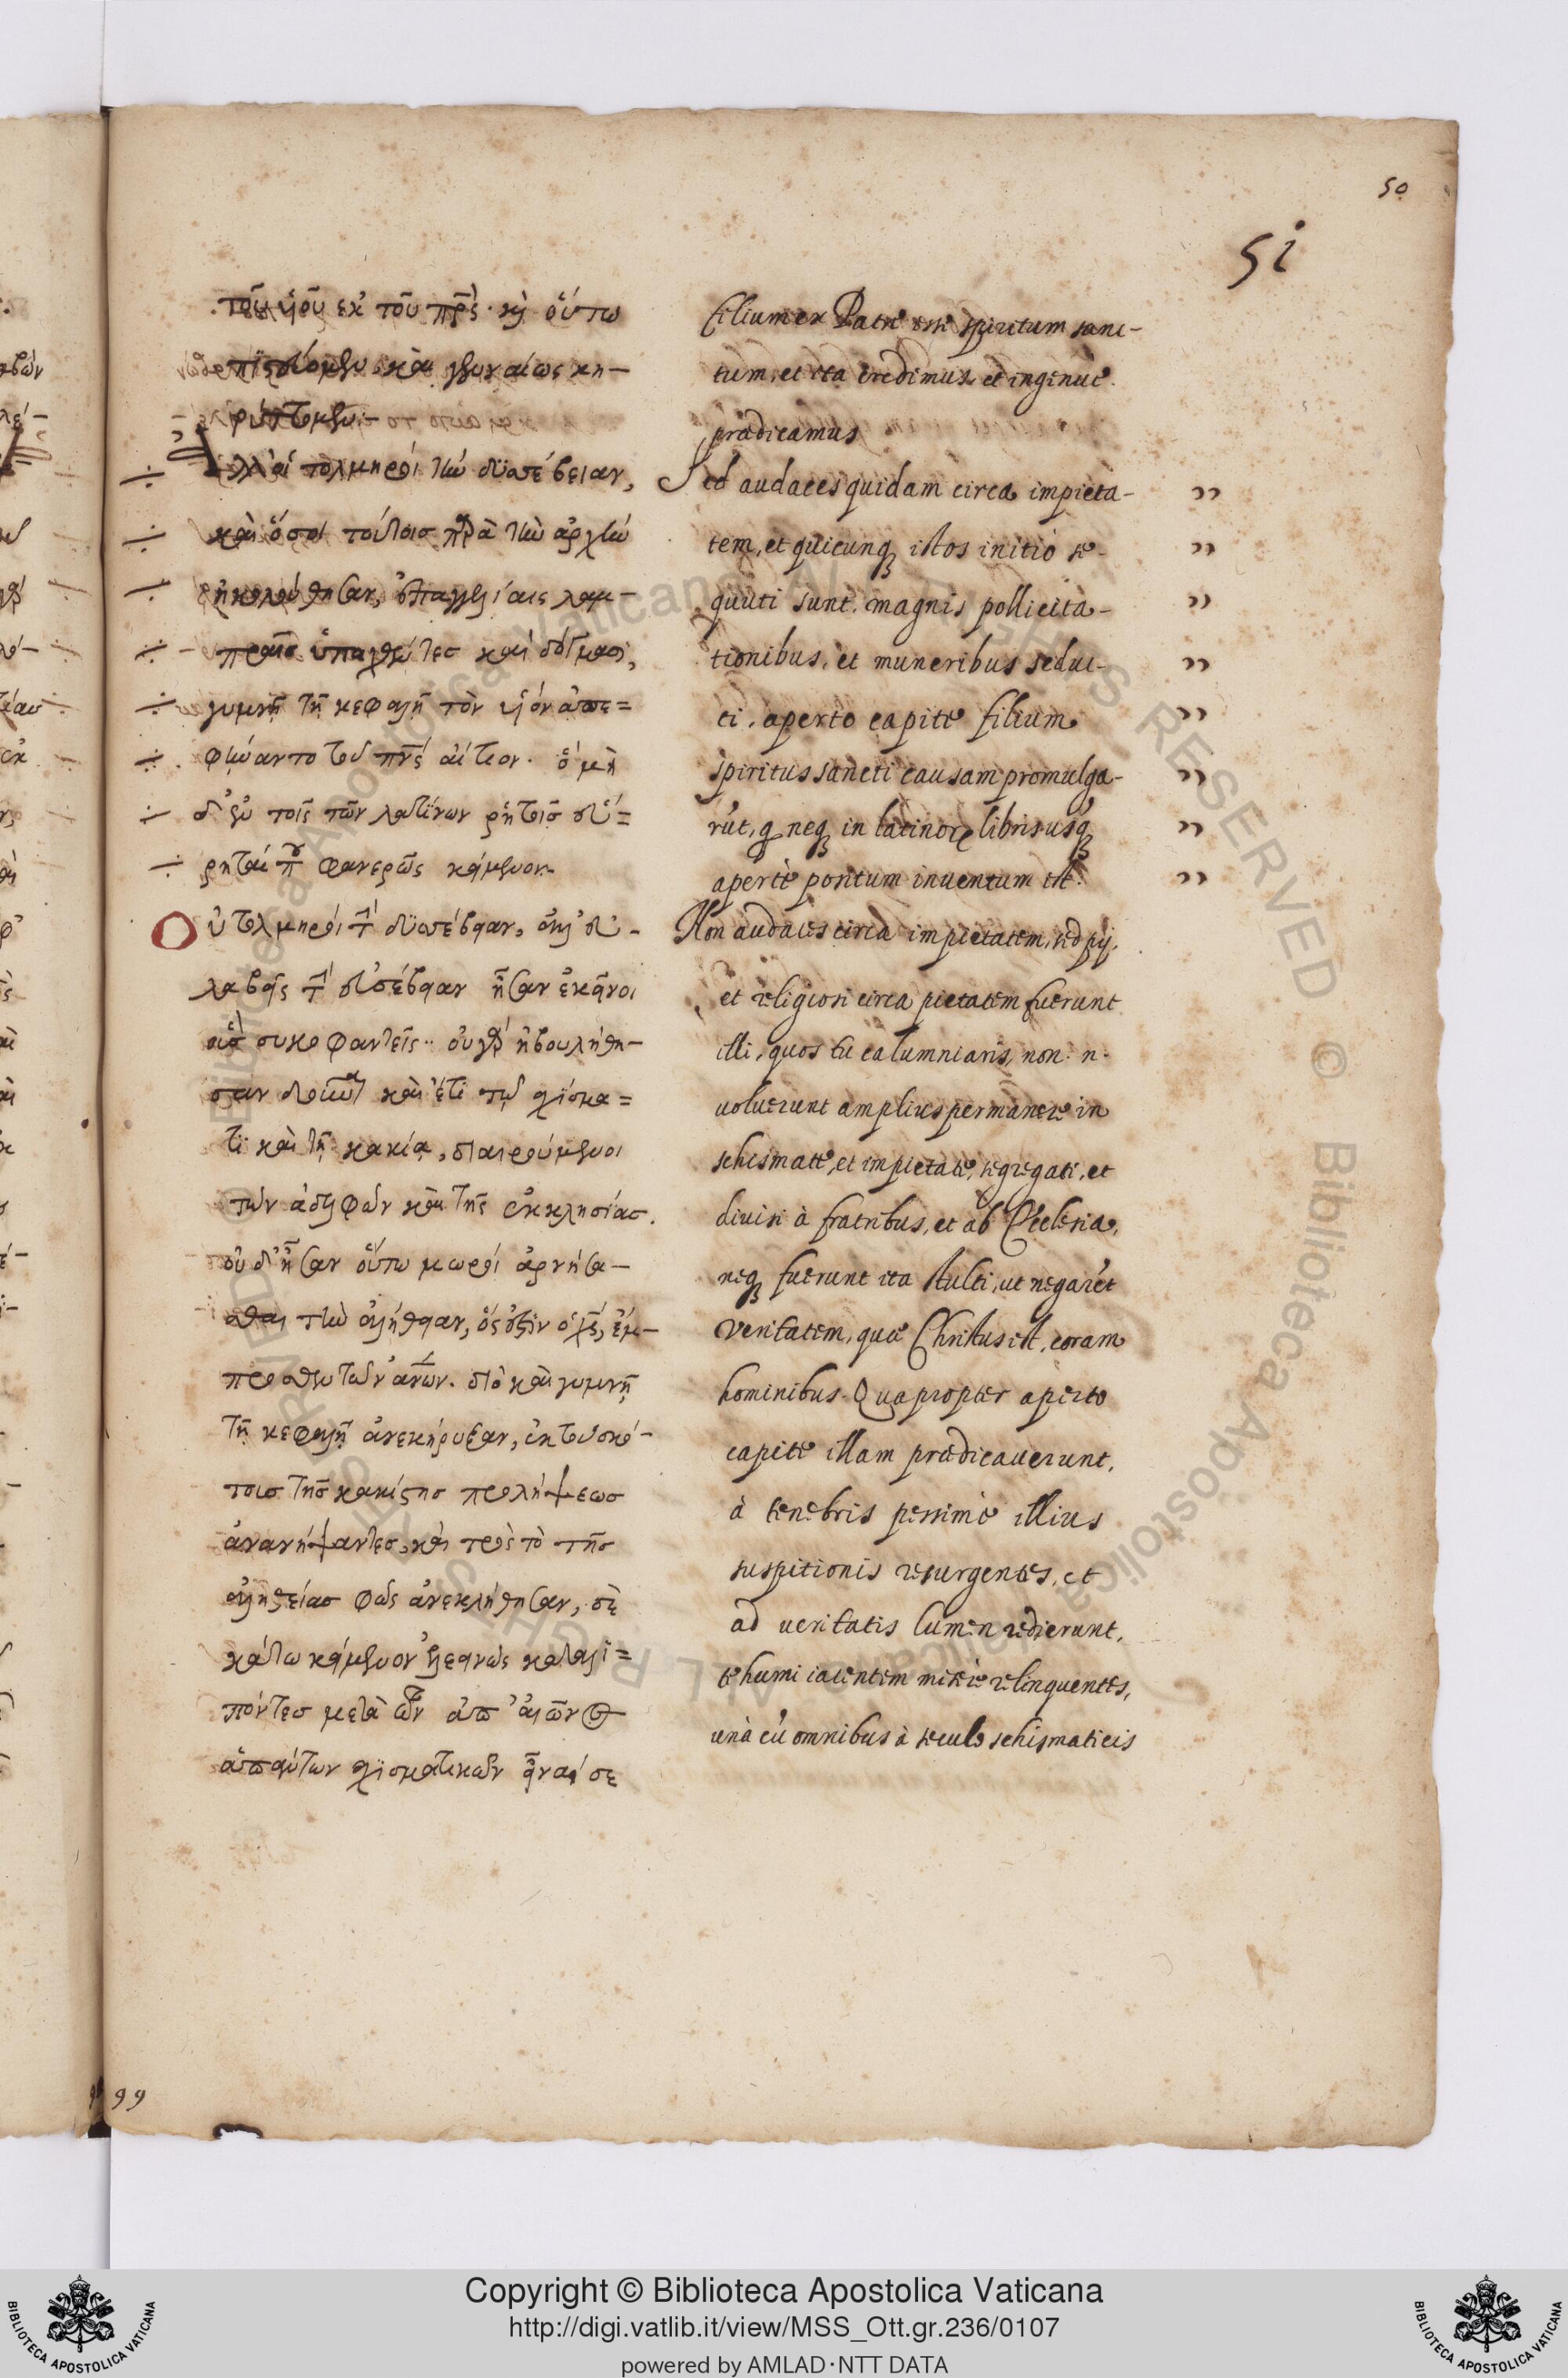 50
51
τοῦ υἱοῦ ἐκ τοῦ πρς̀· κὶ οὕτω
πιστεύομεν καὶ γενναίως κη-
ρύττομεν.
Ἀλλ' οἱ τολμηροὶ τὴν δυσσέβειαν,
καὶ ὅσοι τούτοισ παρὰ τὴν ἀρχὴν
ἠκολούθησαν, ἐπαγγελίαις λαμ-
πραῖσ ὑπαχθέντεσ καὶ δόγμασι,
γυμνῇ τῇ κεφαλῇ τὸν υἱὸν ἀπε=
φήναντο τοῦ πνς́ αἴτιον. ὃ μὴ
δ' ἐν τοῖς τῶν λατίνων ῥητοῖσ εὕ=
ρηταί που φανερῶς κείμενον.
Οὐ τολμηροὶ τὴν δυσσέβειαν, ἀλλ' εὐ-
λαβεῖς τὴν εὐσέβειαν ἦσαν ἐκεῖνοι
οὓσ συκοφαντεῖς·· οὐ γὰρ ἠβουλήθη-
σαν ἔτι τῷ σχίσμα=
τι καὶ τῇ κακίᾳ, διαιρούμενοι
τῶν ἀδελφῶν καὶ τῆς ἐκκλησίασ.
οὐδ' ἦσαν οὕτω μωροὶ ἀρνήσα-
σθαι τὴν ἀλήθειαν, ὅς ἐστιν ὁ χς̄, ἔμ-
προσθεν τῶν ἀνῶν. διὸ καὶ γυμνῇ
τῇ κεφαλῇ ἀνεκήρυξαν, ἐκ τοῦ σκό-
τουσ τῆσ κακίστησ προλήψεωσ
ἀνανήψαντεσ, καὶ πρὸς τὸ τῆσ
ἀληθείασ φῶς ἀνεκλήθησαν, σὲ
κάτω κείμενον ἐλεεινῶς καταλι=
πόντεσ μετὰ τῶν ἀπ' αἰῶνος
ἁπάντων σχισματικῶν εἶναί σε
filium ex Patre esse spiritum sanc-
tum, et ita credimus et inginue
prædicamus
Sed audaces quidam circa impietà-
tem, et quicunq; istos initio se-
quuti sunt, magnis pollicità-
tionibus, et muneribus seduc-
ti, aperto capite filium
spiritus sancti causam promulga-
rūt, q neq; in latinorꝝ libris usq;
apertè positum inuentum est.
Non audaces circa impietatem, sed pij,
et religiosi circa pietatem fuerunt
illi, quos tu calumniaris, non. n.
uoluerunt amplius permanere in
schismate, et impietate, segregati, et
diuisi à fratribus, et ab Ecclesia,
neq; fuerunt ita stulti, ut negarēt
veritatem, quæ Christus est, coram
hominibus. Quapropter aperto
capite illam prædicauerunt,
à tenebris pessimè illius
suspitionis resurgentes, et
ad veritatis lumen redierunt,
te humi iacentem miserè relinquentes,
unà cū omnibus à seculo schismaticis
99
Copyright © Biblioteca Apostolica Vaticana
http://digi.vatlib.it/view/MSS_Ott.gr.236/0107
powered by AMLAD·NTT DATA